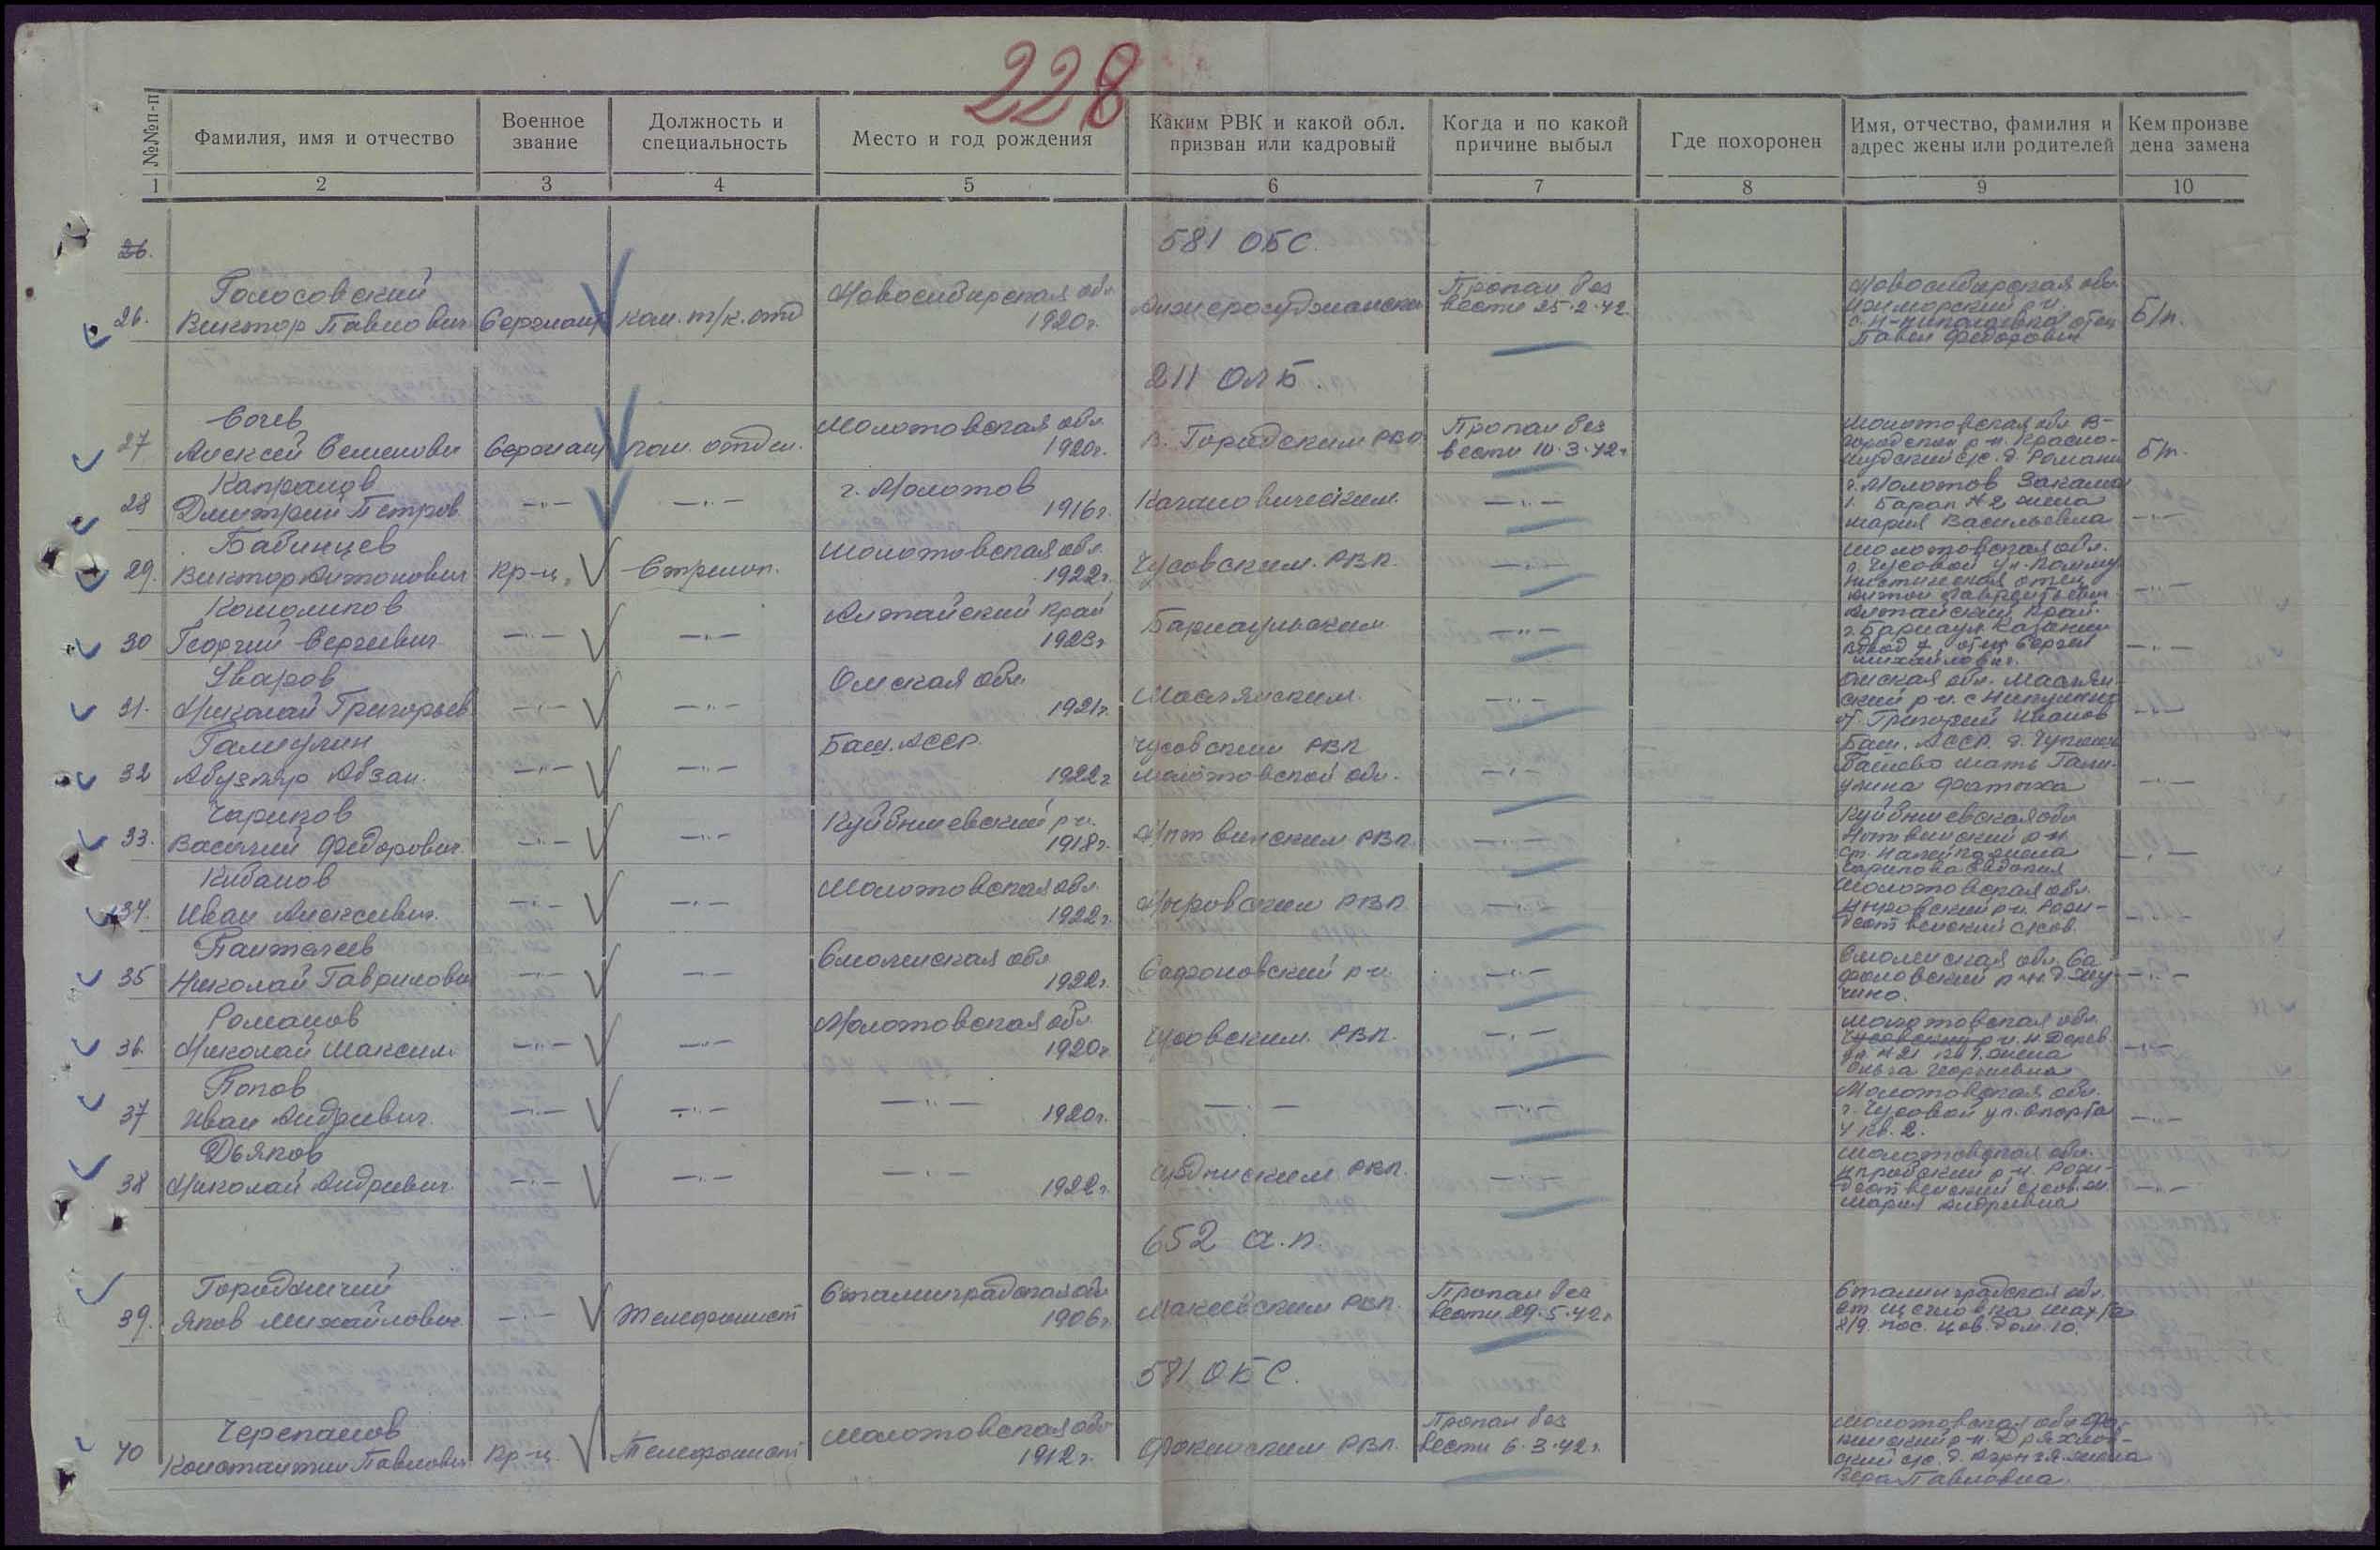 228
№№п-п
Фамилия, имя и отчество
Военное
звание
Должность и
специальность
Место и год рождения
Каким РВК и какой обл.
призван или кадровый
Когда и по какой
причине выбыл
Где похоронен
Имя, отчество, фамилия и
адрес жены или родителей
Кем произве
дена замена
1 2 3 4 5 6 7 8 9 10
26.
581 ОБС.
26.
Голосовский
Виктор Павлович
Сержант
ком. т/к. отд
Новосибирская обл
1920г.
Пропал без
вести 25.2.42.
Новосибирская обл.
Ижморский р-н.
отец
Павел Федорович
б/п.
211 ОЛБ.
27
Сочев
Алексей Семенович
Сержант
ком. отдел.
Молотовская обл
1920г.
В. Городским РВК
Пропал без
вести 10.3.42г
Молотовская обл. В-
городской р-н. Красно-
с/с. д. Романы
б/п.
28
Дмитрий Петров.
—"—
—"—
г. Молотов
1916г.
Кагановическим.
—"—
г. Молотов Закамск
Барак №2 жена
Мария Васильевна
—"—
29.
Бабинцев
Виктор Антонович
кр-ц.
Стрелок.
Молотовская обл.
1922г.
Чусовским. РВК.
—"—
Молотовская обл.
г. Чусовой ул. Комму
нистическая отец
Антон Лаврентьевич
—"—
30
Георгий Сергеевич
—"—
—"—
Алтайский край
1923г
Барнаульским
—"—
Алтайский край.
г. Барнаул
отец Сергей
Михайлович.
—"—
31.
Уваров
Николай Григорьев
—"—
—"—
Омская обл
1921г.
Маслянским.
—"—
Омская обл. Маслян
ский р-н. с
от. Григорий Иванов
—"—
32
Галиулин
Абузяр Абзал.
—"—
—"—
Баш. АССР.
1922г
Чусовским РВК
Молотовской обл.
—"—
Баш. АССР. д.
мать Гали-
улина Фатыха
—"—
33.
Чариков
Василий Федорович.
—"—
—"—
Куйбышевский р-н.
1918г.
РВК.
—"—
Куйбышевская обл
р-н
жена
Чарикова Евдокия
—"—
34.
Кибанов
Иван Алексеевич.
—"—
—"—
Молотовская обл.
1922г.
Ныровским РВК
—"—
Молотовская обл.
Ныровский р-н. Рожд-
дественский с/сов.
—"—
35
Пантелеев
Николай Гаврилович
—"—
—"—
Смоленская обл
1922г.
Сафоновский р-н
—"—
Смоленская обл. Са
фоновский р-н. д.
—"—
36.
Романов
Николай Максим.
—"—
—"—
Молотовская обл
1920г
Чусовским. РВК.
—"—
Молотовская обл.
Чусовский р-н.
жена
Ольга Георгиевна
—"—
37
Попов
Иван Андреевич.
—"—
—"—
—"—
1920г.
—"—
—"—
Молотовская обл.
г. Чусовой ул.
4 кв. 2.
—"—
38
Дьяков
Николай Андреевич.
—"—
—"—
—"—
1922г.
РВК.
—"—
Молотовская обл.
р-н. Рожд-
дественский с/сов. м.
Мария Андреевна
—"—
652 а.п.
39.
Городничий
Яков Михайлович
—"—
Телефонист
Сталинградская обл
1906г
Макеевским РВК.
Пропал без
вести 29.5.42г
Сталинградская обл.
ст. Щегловка шахта
8/9. пос. дом. 10.
581 ОБС.
40
Черепанов
Константин Павлович
кр-ц.
Телефонист
Молотовская обл
1912г.
Фокинским РВК.
Пропал без
вести 6.3.42г.
Молотовская обл. Фо-
кинский р-н.
с/с. д. жена
Вера Павловна.